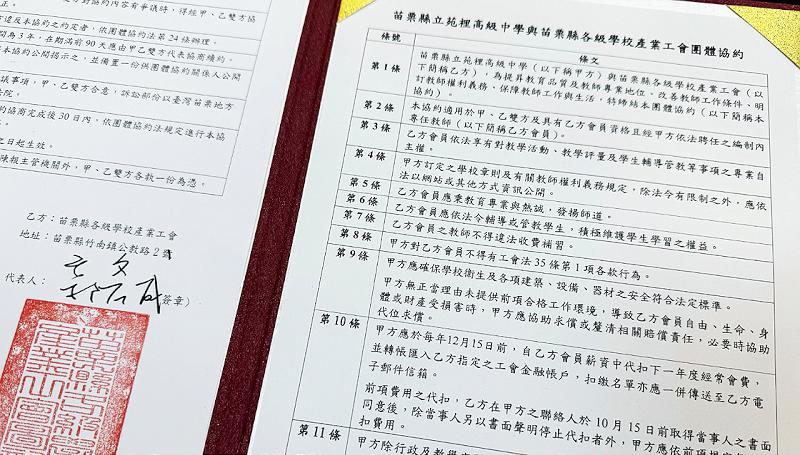 對協約內容有爭議時，得經甲、乙雙方協
正。
方違反本協約之約定者，依團體協約法第24條辦理。
間為3年，在期滿前90天應由甲乙雙方代表協商續約。
本協約公開揭示之，並備置一份供團體協約關係人公開
議事項，甲、乙雙方合意，訴訟部份以臺灣苗栗地方
法院。
協商完成後30日內，依團體協約法規定進行本協
之日起生效。
陳報主管機關外，甲、乙雙方各執一份為憑。
乙方：苗栗縣各級學校產業工會
地址：苗栗縣竹南鎮公教路2號
代表人：
簽章）
苗栗縣立苑裡高級中學與苗栗縣各級學校產業工會團體協約
條號 條文
第1條 苗栗縣立苑裡高級中學（以下稱甲方）與苗栗縣各級學校產業工會（以
下簡稱乙方），為提昇教育品質及教師專業地位、改善教師工作條件、明
訂教師權利義務、保障教師工作與生活，特締結本團體協約（以下簡稱本
協約）。
第2條 本協約適用於甲、乙方及具有乙方會員資格且經甲方依法聘任之編制內
專任教師（以下簡稱乙方會員）。
第3條 乙方會員依法享有對教學活動、教學評量及學生輔導管教等事項之專業自
主權。
第4條 甲方訂定之學校章則及有關教師權利義務規定，除法令有限制之外，應依
法以網站或其他方式資訊公開。
第5條 乙方會員應秉教育專業與熱誠，發揚師道。
第6條 乙方會員應依法令輔導或管教學生，積極維護學生學習之權益。
第7條 乙方會員之教師不得違法收費補習。
第8條 甲方對乙方會員不得有工會法35條第1項各款行為。
第9條 甲方應確保學校衛生及各項建築、設備、器材之安全符合法定標準。
甲方無正當理由未提供前項合格工作環境，導致乙方會員自由、生命、身
體或財產受損害時，甲方應協助求償或釐清相關賠償責任，必要時協助
代位求償。
第10條 甲方應於每年12月15日前，自乙方會員薪資中代扣下一年度經常會費，
並轉帳匯入乙方指定之工會金融帳戶，扣繳名單亦應一併傳送至乙方電
子郵件信箱。
前項費用之代扣，乙方在甲方之聯絡人於10月15日前取得當事人之書面
同意後，除當事人另以書面聲明停止代扣者外，甲方應依前項規定
扣費用。
第11條 甲方除行政及教學